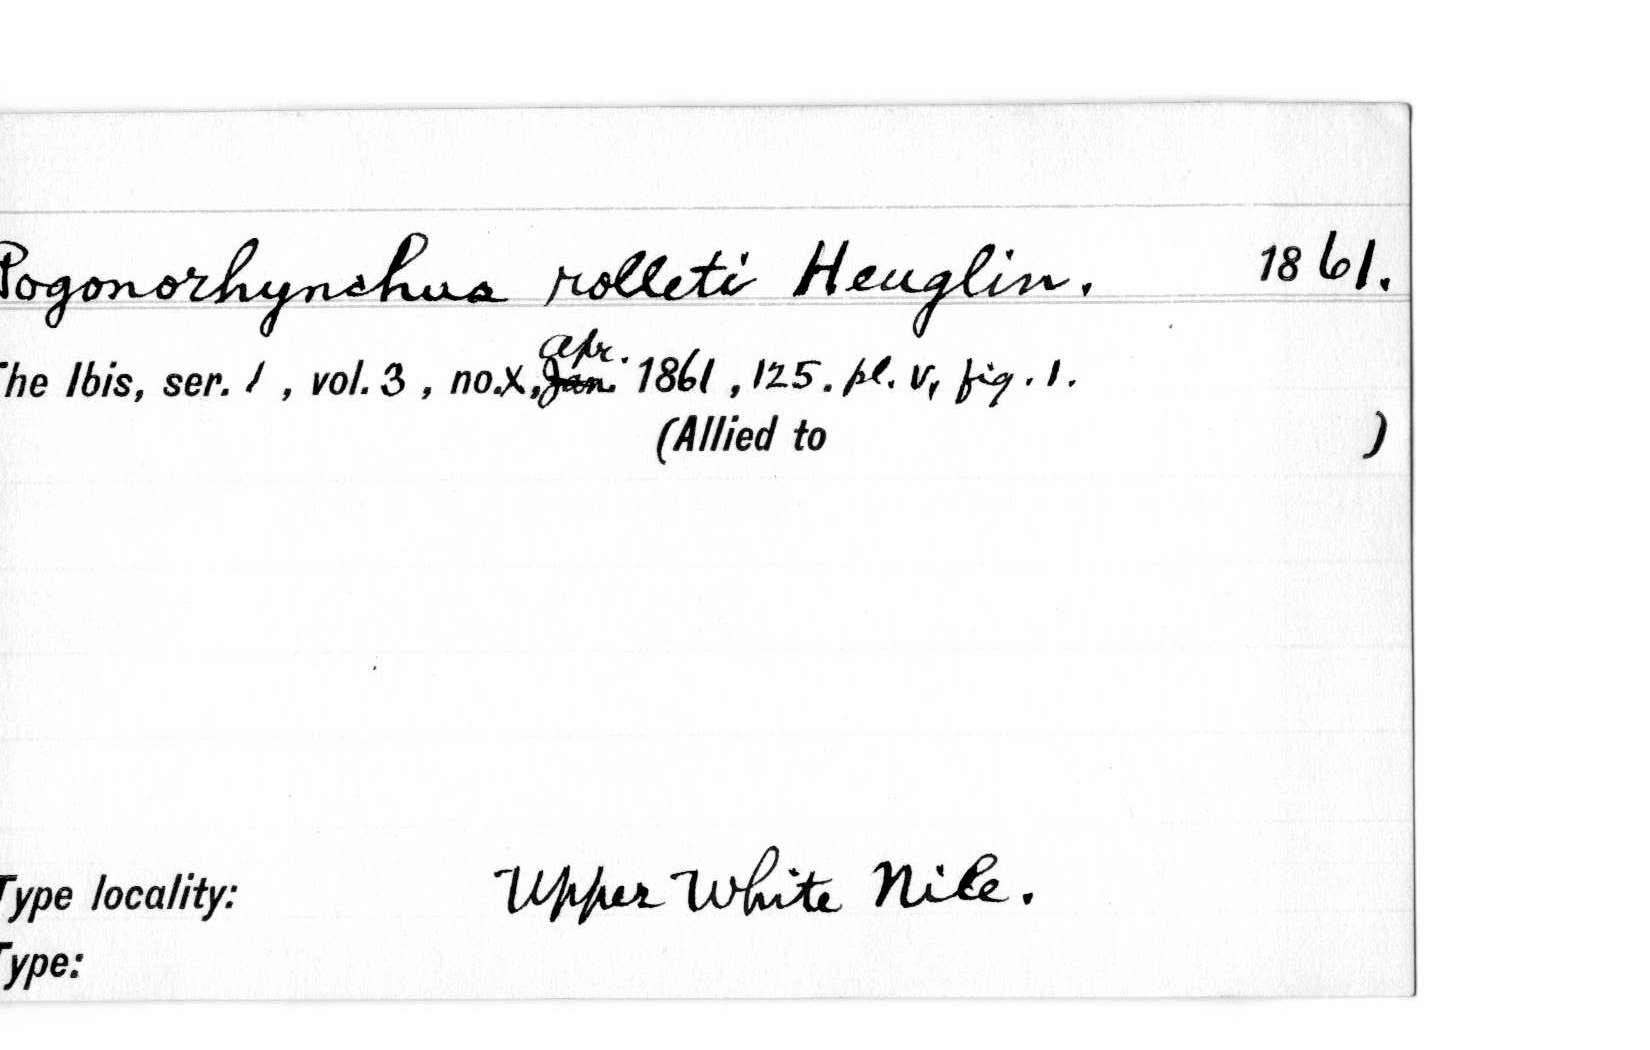 Pogonorhynchus rolleti Heuglin. 1861.
The Ibis, ser. 1, vol. 3, no. X, Jan. Apr. 1861, 125. pl. V, fig. 1.
(Allied to )
Type locality: Upper White Nile.
Type: